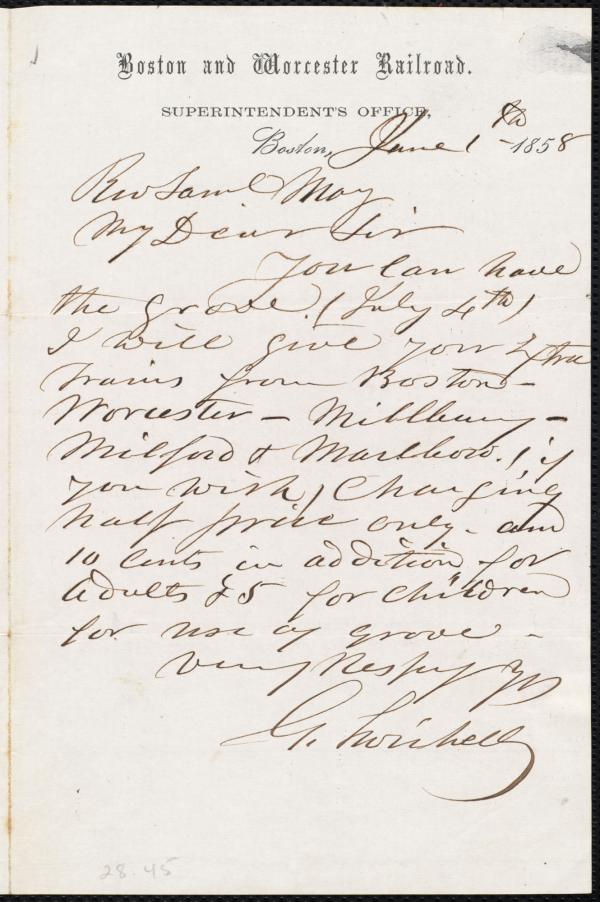 Boston and Worcester Railroad.
SUPERINTENDENT'S OFFICE,
Boston, June 1th 1858
Rev Saml May
My Dear Sir
You Can have
the grove. (July 4th)
I will give you Extra
trains from Boston -
Worcester - Millbury -
Milford & Marlboro. (if
you wish) Charging
half price only - and
10 cents in addition for
adults & 5 " for children
for use of grove -
Very Respy Yrs
G. Twichell
28.45